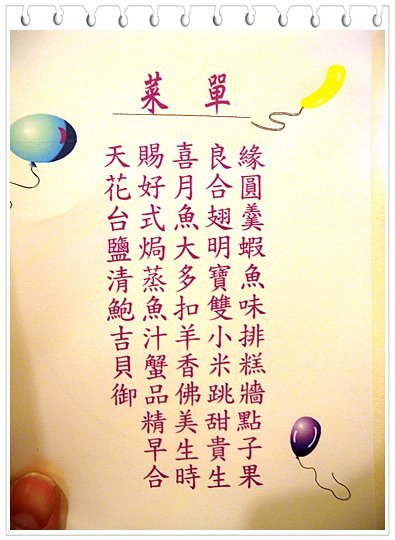 菜單
天賜喜良緣
花好月合圓
台式魚翅羹
鹽焗大明蝦
清蒸多寶魚
鮑魚扣雙味
吉汁羊小排
貝蟹香米糕
御品佛跳牆
精美甜點
早生貴子
合時生果